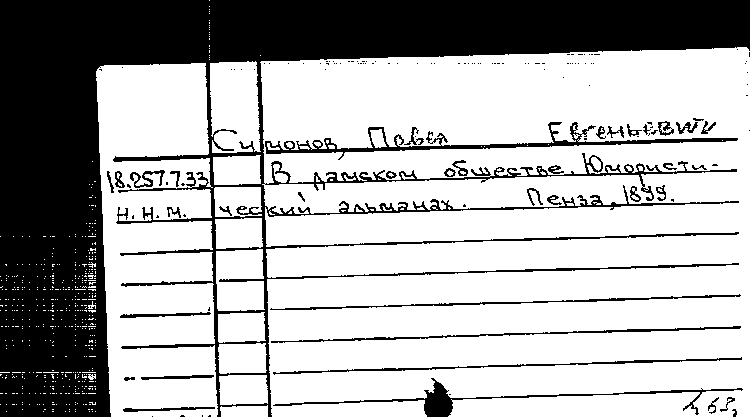 Симонов, Павел Евгеньевич
18.257.7.33 В дамском обществе. Юмористи-
Н.Н.М. ческий альманах. Пенза, 1899.